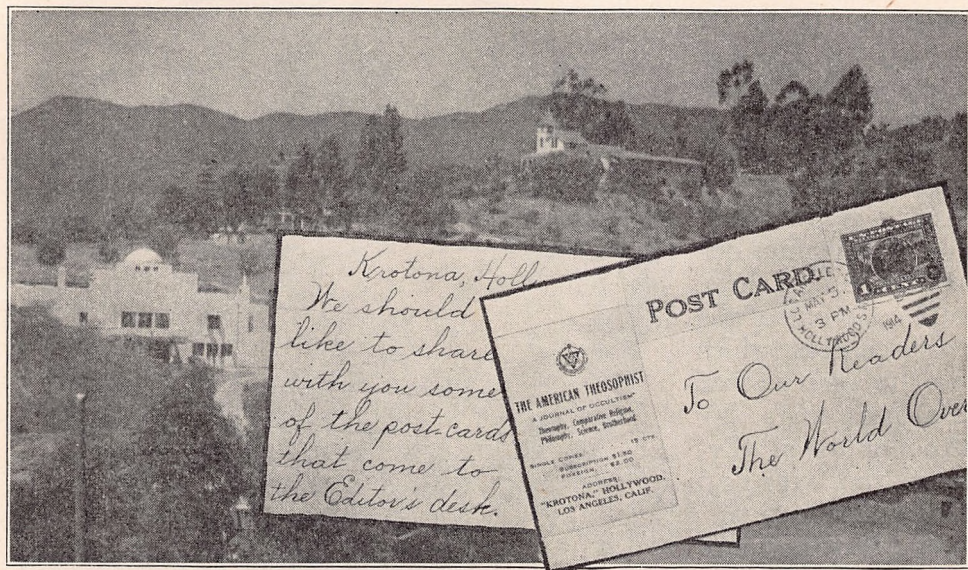 Krotona, Holl
We should
like to share
with you some
of the post-cards
that come to
the Editor's desk.
POST CARD.
MAY 5
3 PM
HOLLYWOOD S
1914
1 CENT
THE AMERICAN THEOSOPHIST
A JOURNAL OF OCCULTISM
Theosophy, Comparative Religion,
Philosophy, Science, Brotherhood.
SINGLE COPIES 15 CTS.
SUBSCRIPTION $1.50
FOREIGN, $2.00
ADDRESS:
"KROTONA," HOLLYWOOD,
LOS ANGELES, CALIF.
To Our Readers
The World Over